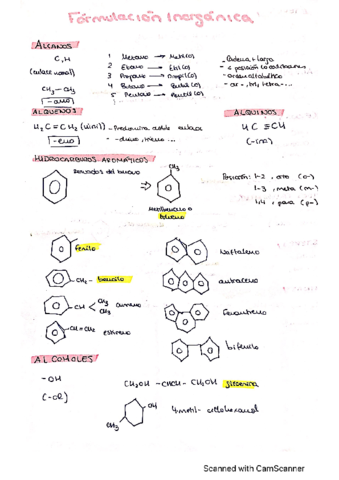 Formulación Inorgánica
ALCANOS
C, H
(enlace normal)
CH3 - CH3
-ano
1 Metano → Metil(o)
2 Etano → Etil(o)
3 Propano → Propil(o)
4 Butano → Butil(o)
5 Pentano → Pentil(o)
- Cadena + larga
- orden alfabético
- di-, tri, tetra-...
ALQUENOS
H2C=CH2 (vinil)
-eno
- Predomina doble enlace
- -dieno, trieno...
ALQUINOS
HC ≡ CH
(-ino)
HIDROCARBUROS AROMÁTICOS
Derivados del benceno
CH3
Metilbenceno o
tolueno
Posición: 1-2, orto (o-)
1-3, meta (m-)
1-4, para (p-)
fenilo
CH2- bencilo
CH CH3 CH3 cumeno
CH=CH2 estireno
Naftaleno
antraceno
fenantreno
bifenilo
ALCOHOLES
-OH
(-ol)
CH2OH - CHOH - CH2OH glicerina
OH
CH3
4-metil-ciclohexanol
Scanned with CamScanner